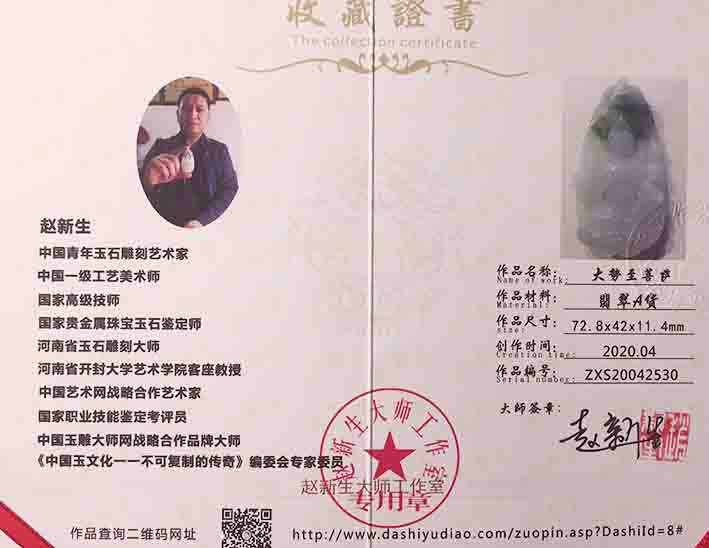 收藏證書
The collection certificate
赵新生
中国青年玉石雕刻艺术家
中国一级工艺美术师
国家高级技师
国家贵金属珠宝玉石鉴定师
河南省玉石雕刻大师
河南省开封大学艺术学院客座教授
中国艺术网战略合作艺术家
国家职业技能鉴定考评员
中国玉雕大师网战略合作品牌大师
《中国玉文化一一不可复制的传奇》编委会专家委员
作品名称: 大势至菩萨
Name of work:
作品材料: 翡翠A货
Material:
作品尺寸: 72.8x42x11.4mm
size:
创作时间: 2020.04
Creation time:
作品编号: ZXS20042530
Serial number:
大师签章: 赵新生
赵新生大师工作室
专用章
赵新生大师工作室
作品查询二维码网址 http://www.dashiyudiao.com/zuopin.asp?DashiId=8#